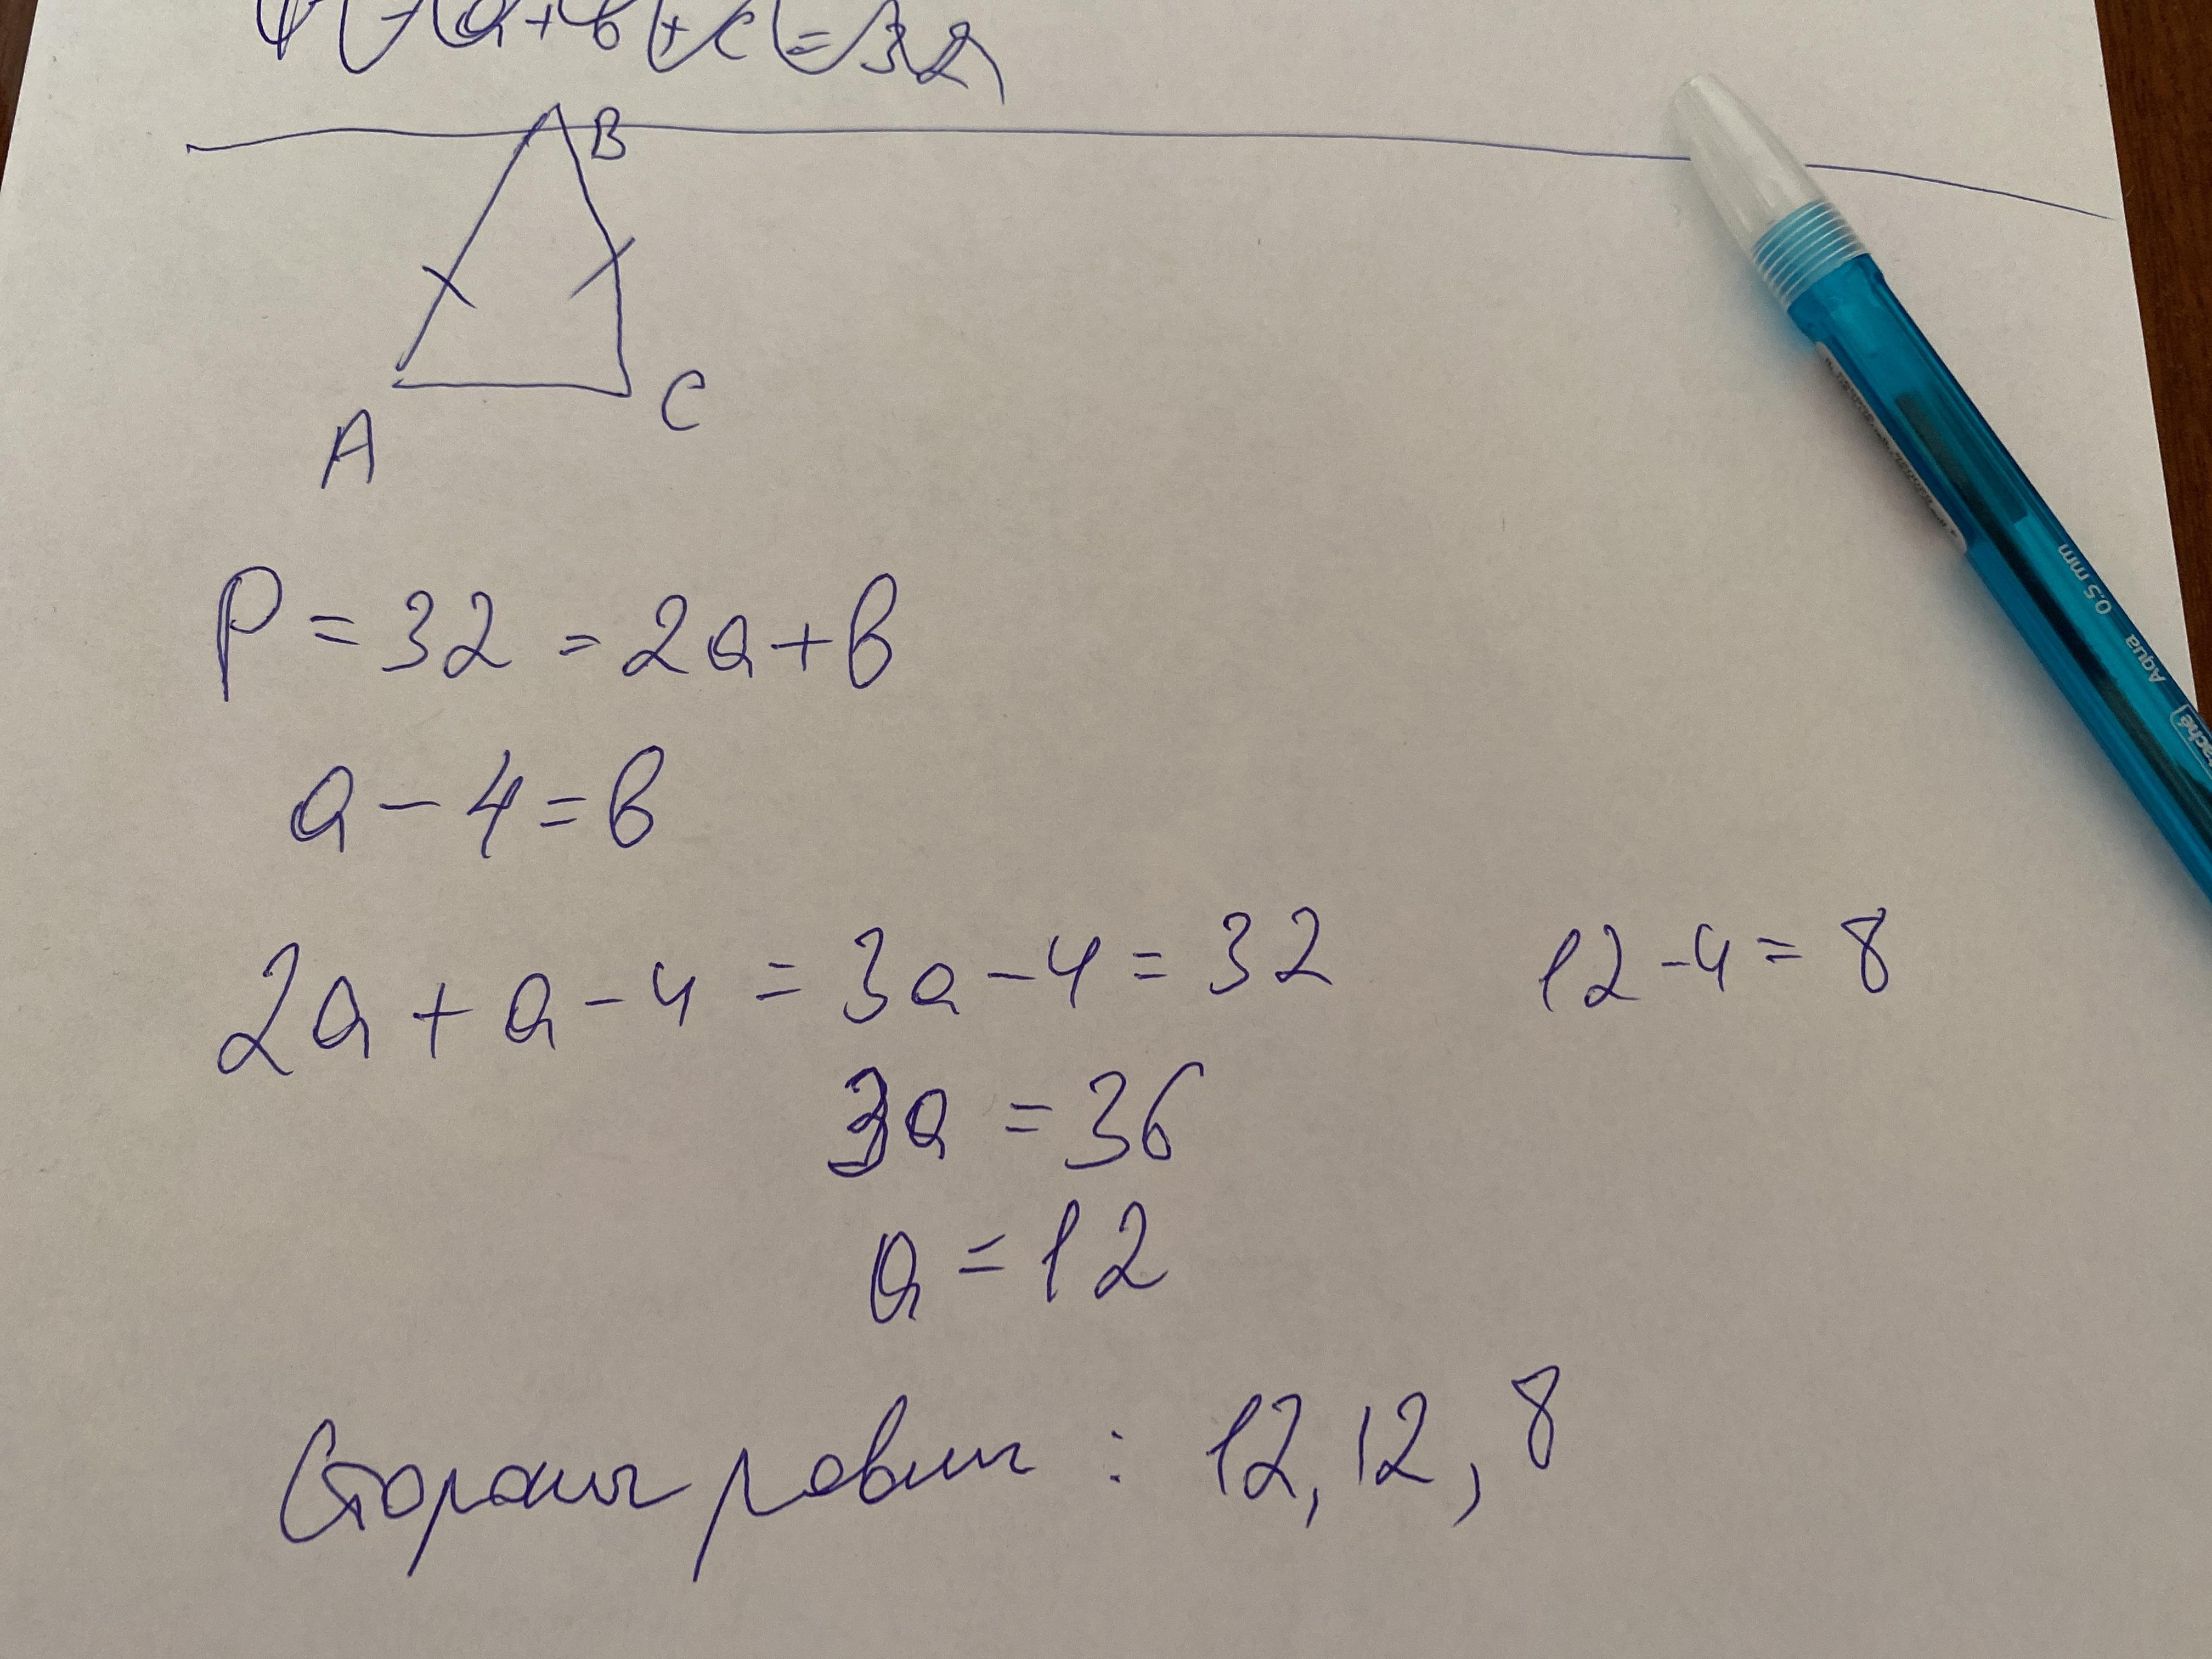 a+b+c=32
B
A
C
P=32=2a+b
a-4=b
2a+a-4=3a-4=32
12-4=8
3a=36
a=12
Стороны равны: 12, 12, 8
0,5 mm Aqua